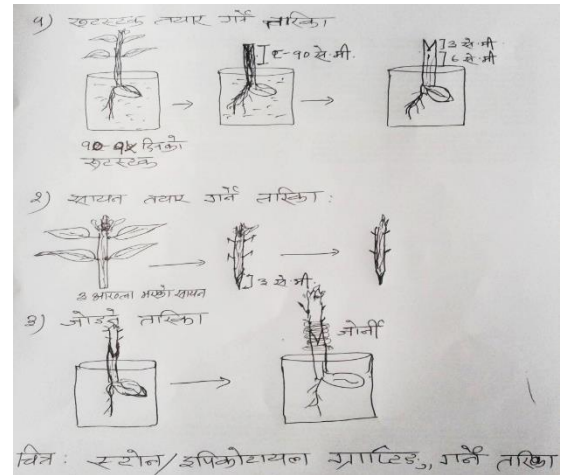 १) रुटस्टक तयार गर्ने तरिका
९-१० से.मी.
३ से.मी
६ से.मी
१०-१५ दिनको
रुटस्टक
२) सायन तयार गर्ने तरिका:
३ से.मी.
३ आँख्ला भएको सायन
३) जोड्ने तरिका
जोर्नी
चित्र: स्टोन/इपिकोटायल ग्राफ्टिङ्ग गर्ने तरिका